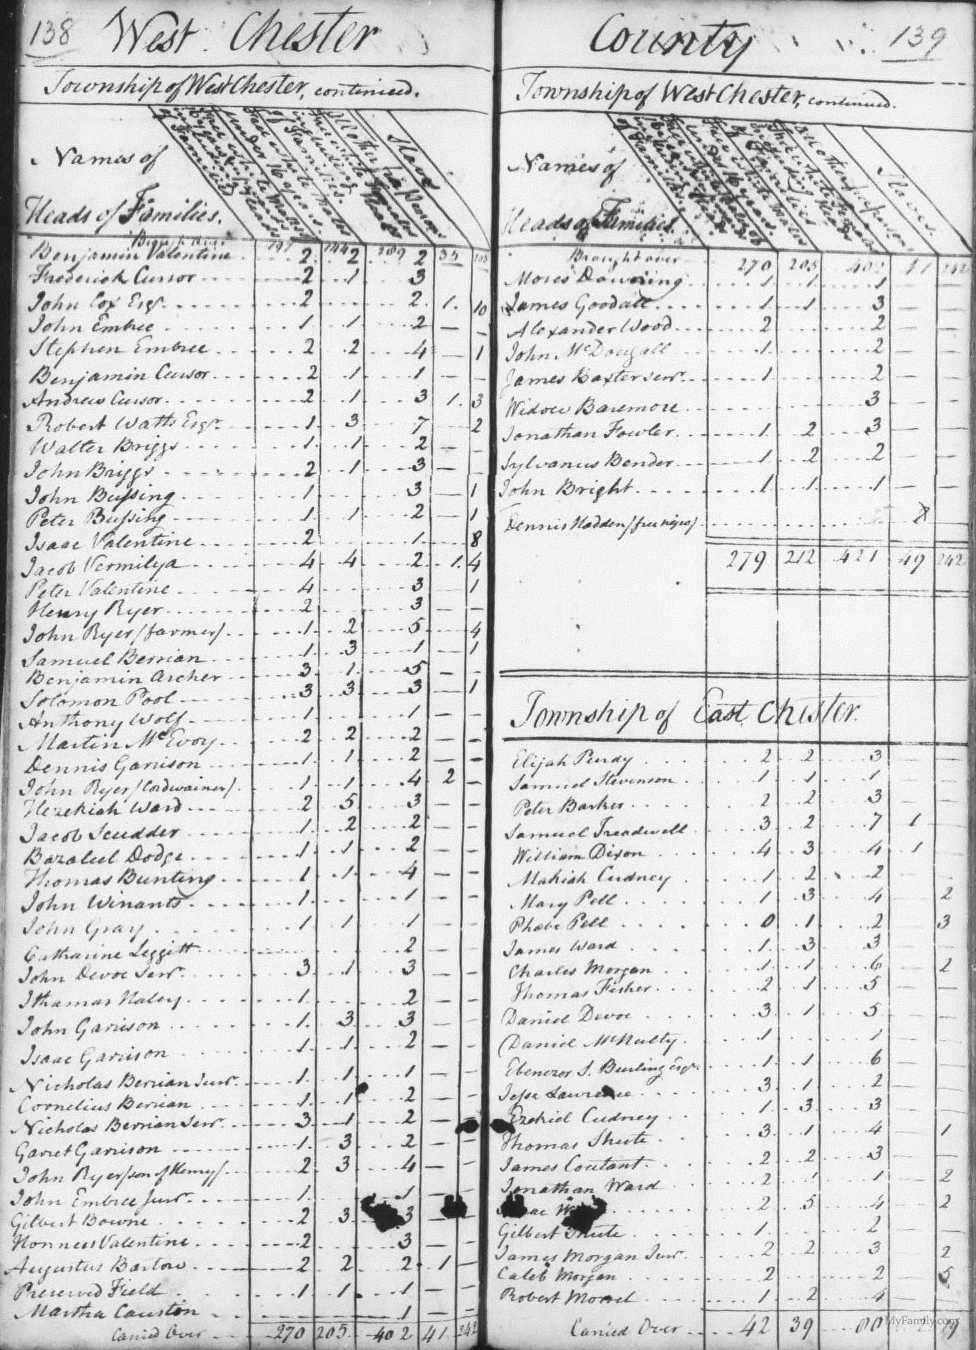 138 West Chester
Township of West Chester, continued.
Names of
Heads of Families.
Slaves
Brought over 197 142 289 35
Benjamin Valentine 2 2 2
Frederick Cursor 2 1 3
John Cox Esqr. 2 2 1 10
John Embree 1 1 2 — —
Stephen Embree 2 2 4 — 1
Benjamin Cursor 2 1 1 — —
Andrew Cursor 2 1 3 1 3
Robert Watts Esqr. 1 3 7 2
Walter Briggs 1 1 2 —
John Briggs 2 1 3 —
John Bussing 1 3 — 1
Peter Bussing 1 1 2 — 1
Isaac Valentine 2 1 8
Jacob Vermilya 4 4 2 1 4
Peter Valentine 4 3 1
Henry Ryer 2 3 — —
John Ryer (farmer) 1 2 5 4
Samuel Berrian 1 3 1 — 1
Benjamin Archer 3 1 5 — —
Solomon Pool 3 3 3 — 1
Anthony Wolf 1 1 — —
Martin McEvoy 2 2 2 — —
Dennis Garrison 1 1 2 — —
John Ryer (Cordwainer) 1 1 4 2 —
Hezekiah Ward 2 5 3 — —
Jacob Scudder 1 2 2 — —
Bazaleel Dodge 1 1 2 — —
Thomas Bunting 1 1 4 — —
John Winants 1 1 — —
John Gray 1 1 1 — —
Catharine Leggitt 2 — —
John Devoe Senr. 3 1 3 — —
Ithamar Haley 1 2 — —
John Garrison 1 3 3 — —
Isaac Garrison 1 1 2 — —
Nicholas Berrian Junr. 1 1 1 — —
Cornelius Berrian 1 1 2 — —
Nicholas Berrian Senr. 3 1 2 —
Garret Garrison 1 3 2 — —
John Ryer (son of Henry) 2 3 4 — —
John Embree Junr. 1 1 — —
Gilbert Bowne 2 3 3 — —
Honness Valentine 2 3 — —
Augustus Barlow 2 2 2 1 —
Preserved Field 1 1 1 — —
Martha Causton 1 — —
Carried Over 270 205 402 41 242
County 139
Township of West Chester, continued.
Names of
Heads of Families
Slaves.
Brought over 270 205 402 41 242
Moses Downing 1 1 1 — —
James Goodall 1 1 3 — —
Alexander Wood 2 2 — —
John McDougall 1 2 — —
James Baxter senr. 1 2 — —
Widow Baremore 3 — —
Jonathan Fowler 1 2 3 — —
Sylvanus Bender 1 2 2 — —
John Bright 1 1 1 — —
Dennis Hadden (free negro) 8
279 212 421 49 242
Township of East Chester.
Elijah Purdy 2 2 3 — —
Samuel Stevenson 1 1 1 — —
Peter Barker 2 2 3 — —
Samuel Treadwell 3 2 7 1
William Dixon 4 3 4 1
Makiah Cudney 1 2 2 —
Mary Pell 1 3 4 2
Phebe Pell 0 1 2 3
James Ward 1 3 3 —
Charles Morgan 1 1 6 2
Thomas Fisher 2 1 5 —
Daniel Devoe 3 1 5 —
Daniel McNulty 1 1 —
Ebenezer S. Burling Esqr. 1 1 6
Jesse Lawrence 3 1 2
Ezekiel Cudney 1 3 3
Thomas Shute 3 1 4 1
James Coutant 2 2 3 —
Jonathan Ward 2 1 1 2
2 5 4 2
Gilbert Shute 1 2
James Morgan Junr. 2 2 3 2
Caleb Morgan 2 2 5
Robert Morrel 1 2 4
Carried Over 42 39 80
MyFamily.com